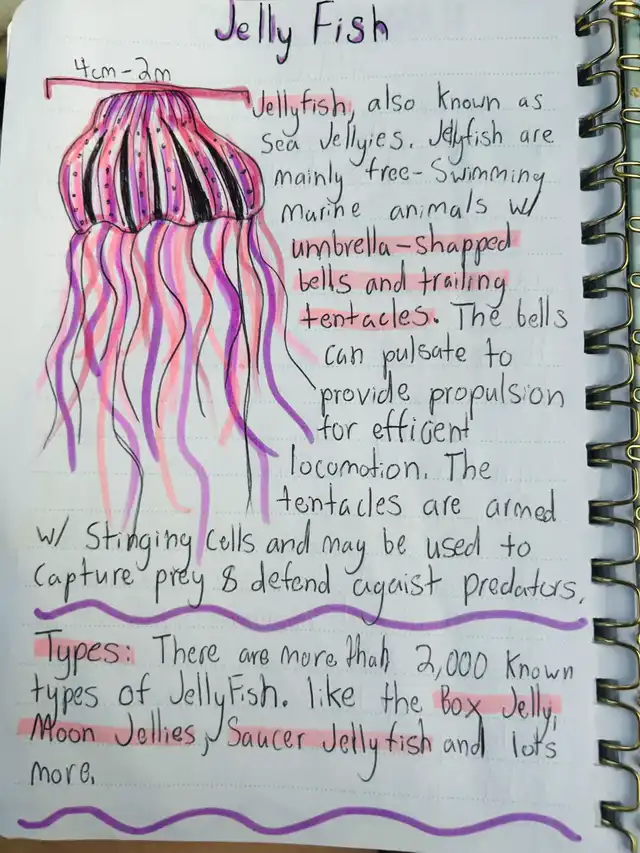 Jelly Fish
4cm-2m
Jellyfish, also known as
sea Jellyies. Jellyfish are
mainly free-Swimming
marine animals w/
umbrella-shapped
bells and trailing
tentacles. The bells
can pulsate to
provide propulsion
for efficent
locomotion. The
tentacles are armed
w/ Stinging Cells and may be used to
Capture prey & defend agaist predators.
Types: There are more than 2,000 Known
types of JellyFish. like the Box Jelly,
Moon Jellies, Saucer Jellyfish and lots
more.